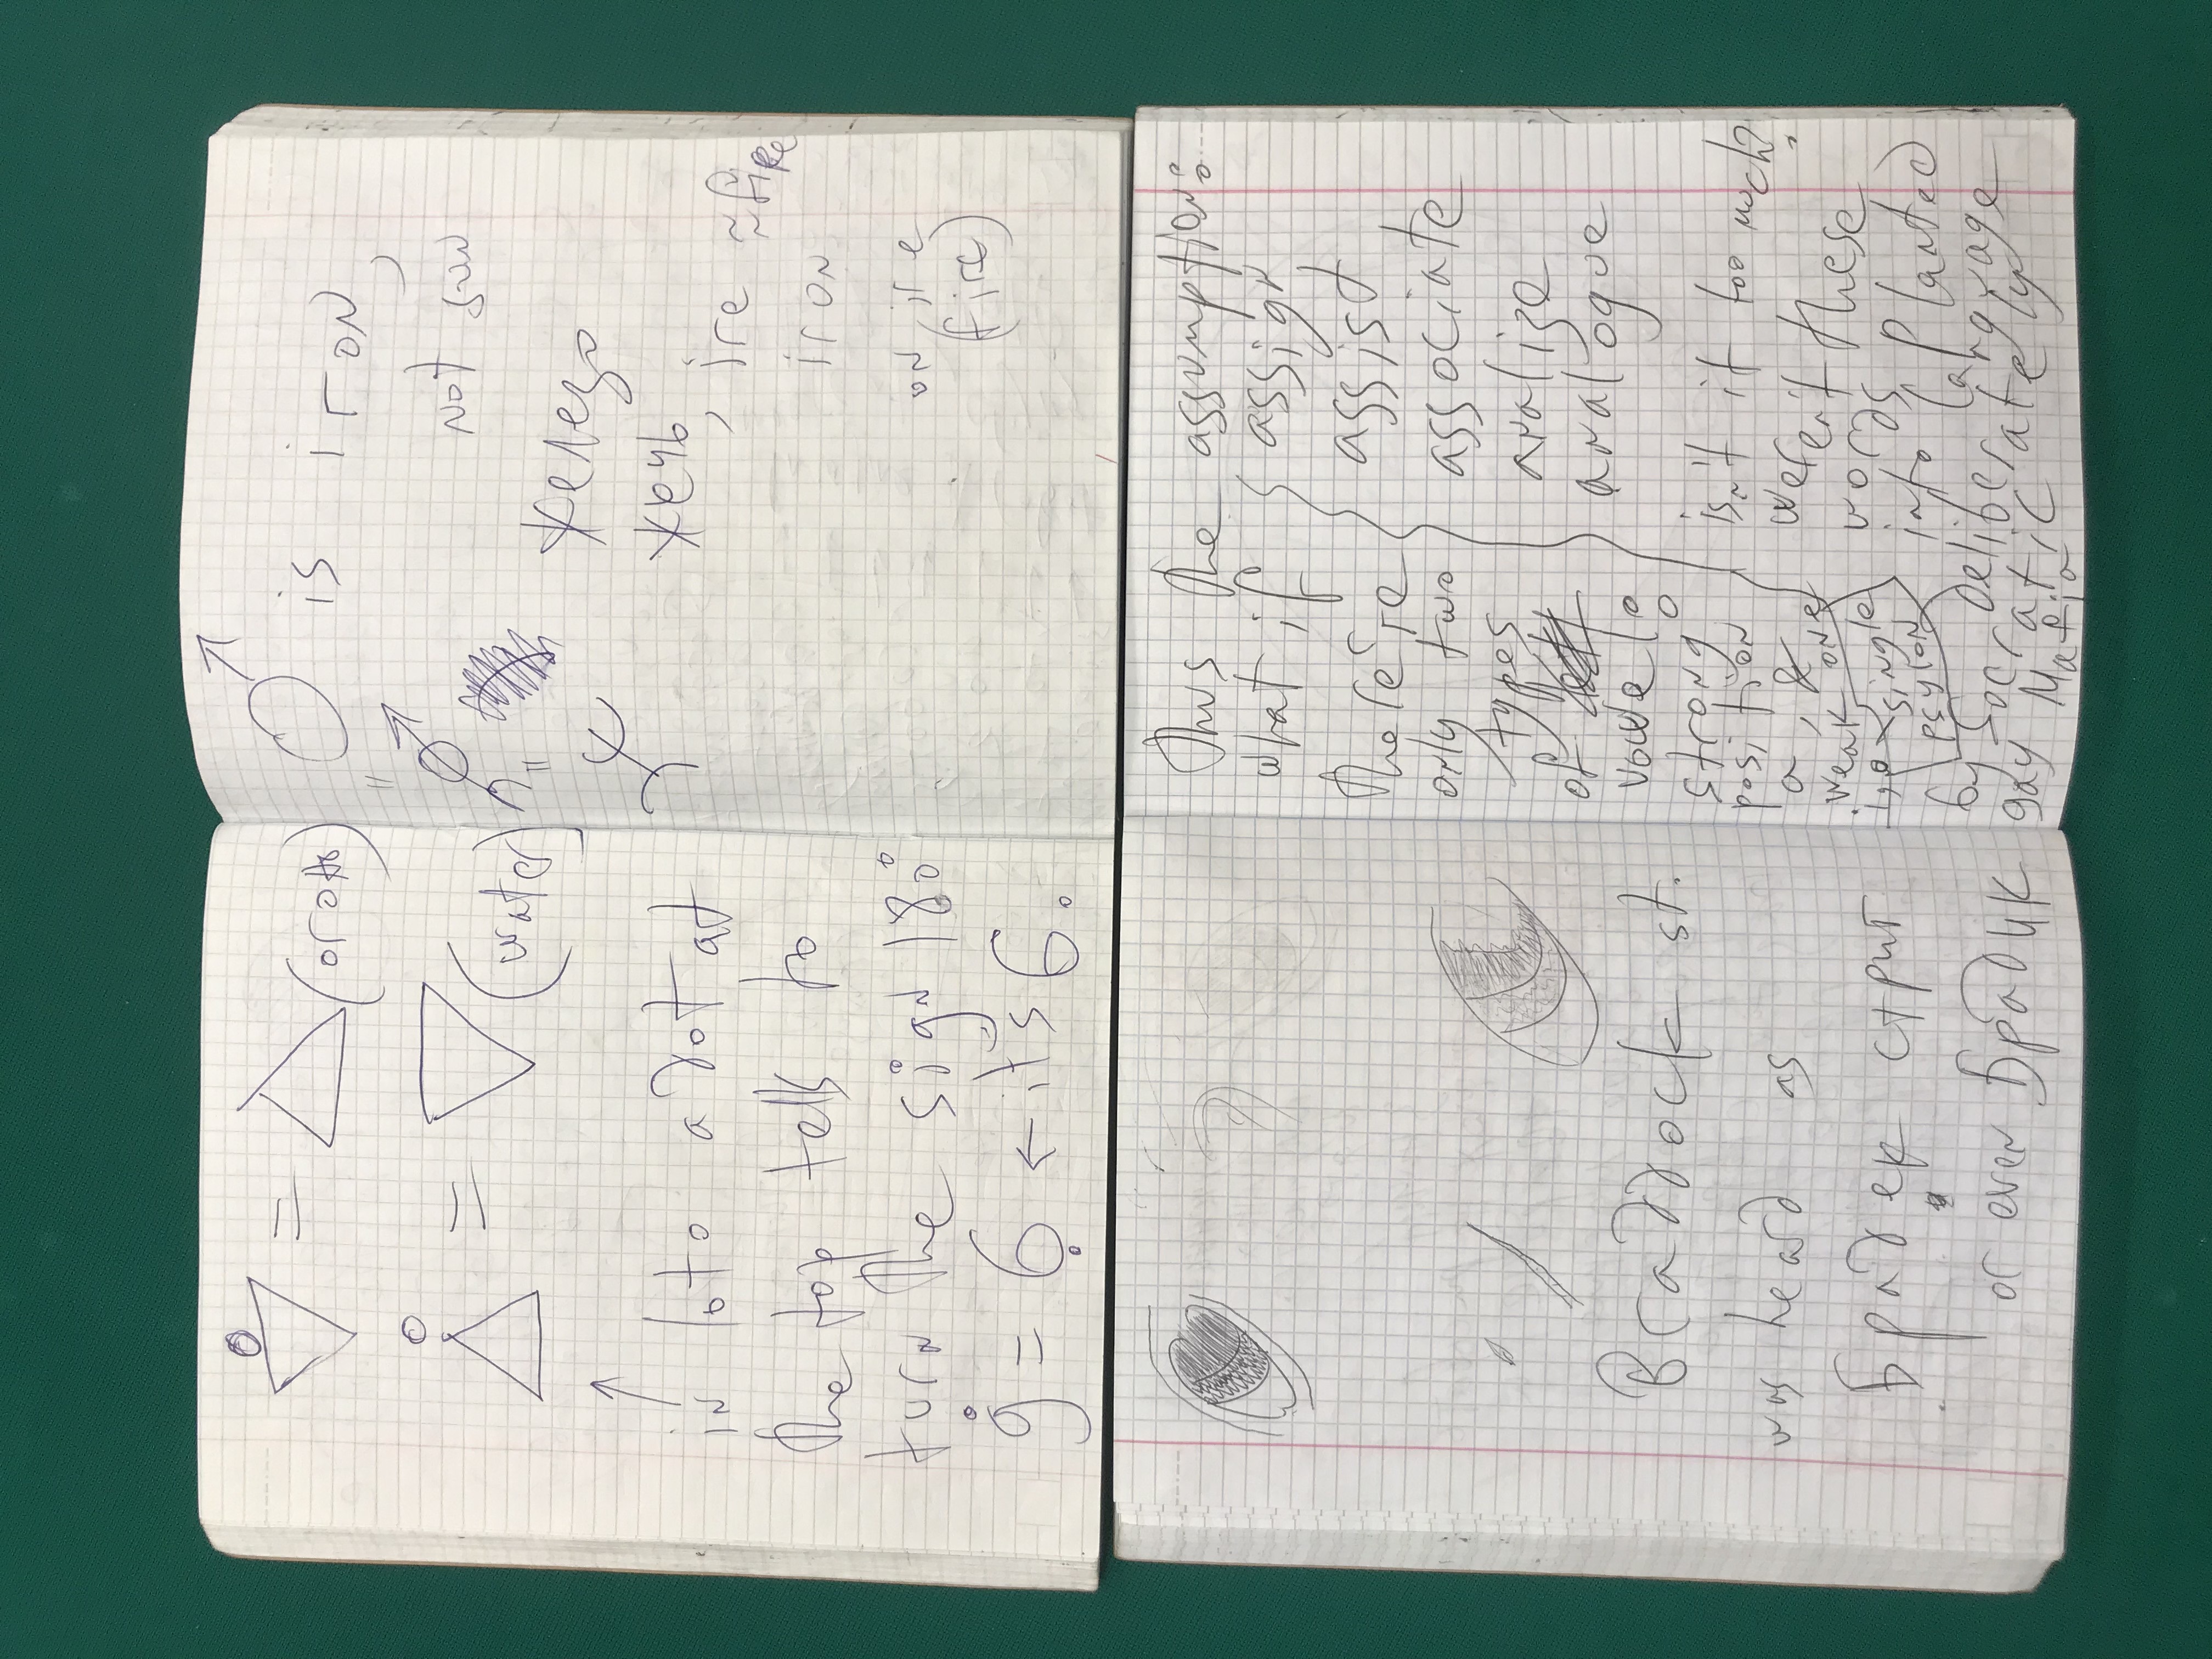 =
(огонь)
=
(water)
in loto a dot at
the top tells to
turn the sign 180°
9 = 6 ← it's 6.
♂ is iron,
not sun
железо
жечь, ire ≈ fire
iron
on ire
(fire)
Braddock st.
was heard as
Брадек стрит
or even Брадик
Thus the assumption:
what if
there're
only two
types
of
vowel:
strong
position
a, &
weak one
i, o
single
psylon
assign
assist
associate
analize
analogue
isn't it too much?
weren't these
words planted
into language
deliberately
by Socratic
gay Mafia